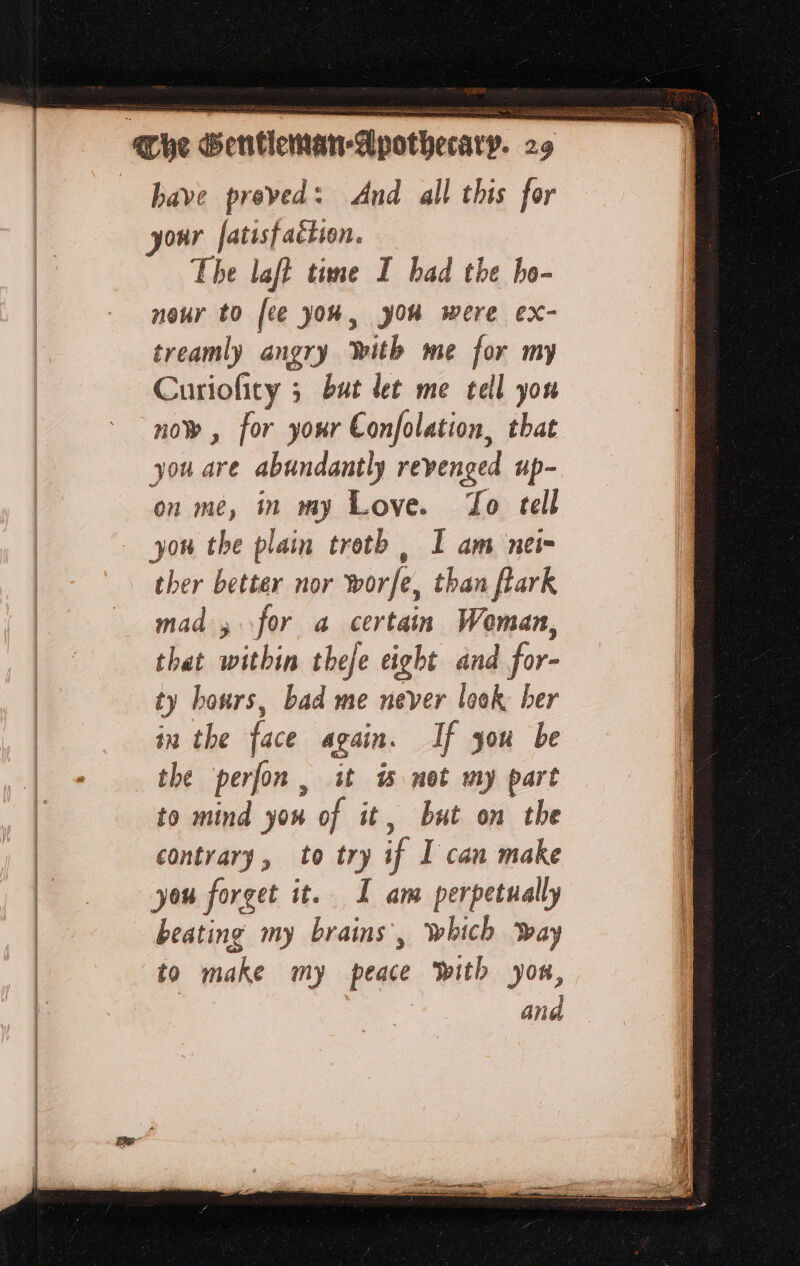 The Gentleman-Apothecary. 29
have proved: And all this for
your ſatisfaction.
The laſt time I had the ho-
nour to ſee you, you were ex-
treamly angry with me for my
Curioſity ; but let me tell you
now, for your Conſolation, that
you are abundantly revenged up-
on me, in my Love. To tell
you the plain troth, I am nei-
ther better nor worſe, than ſtark
mad ; for a certain Woman,
that within theſe eight and for-
ty hours, bad me never look her
in the face again. If you be
the perſon, it is not my part
to mind you of it, but on the
contrary, to try if I can make
you forget it. I am perpetually
beating my brains, which way
to make my peace with you,
and